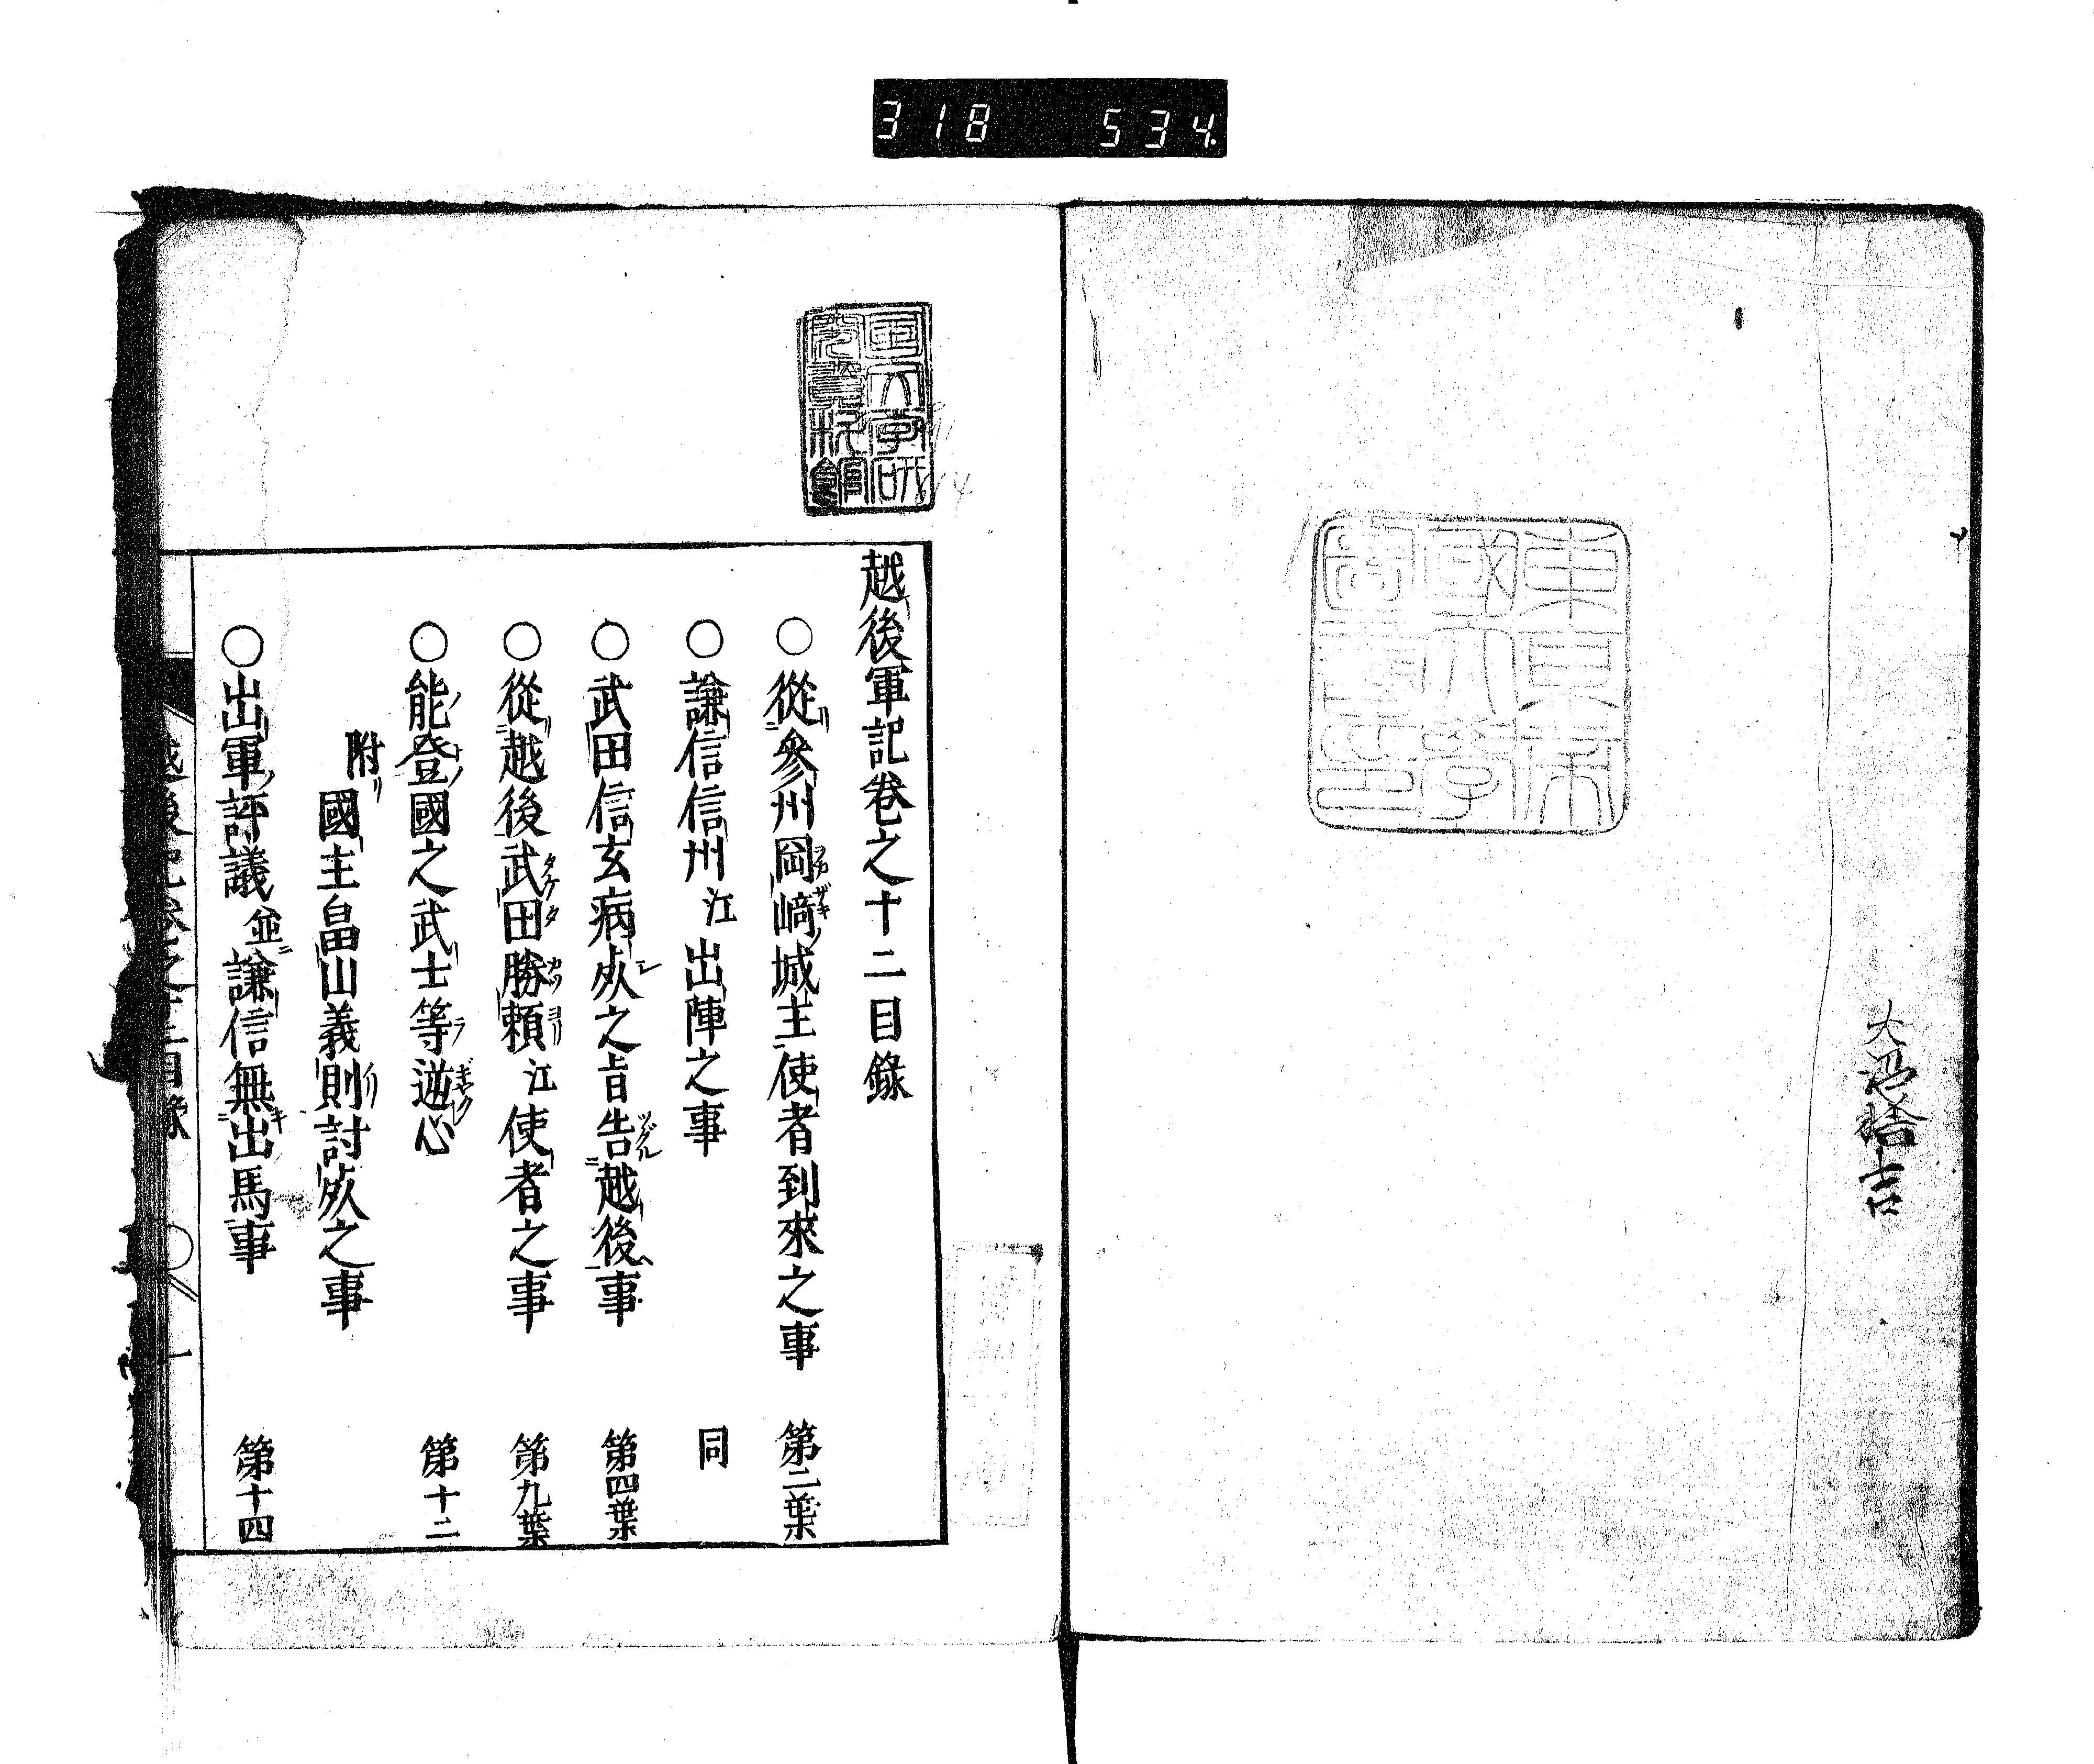 318 534
大沼捨吉
東京帝國大學圖書印
越後軍記卷之十二目錄
○從參州岡﨑城主使者到來之事 第二葉
○謙信信州江出陣之事 同
○武田信玄病死之旨告越後事 第四葉
○從越後武田勝頼江使者之事 第九葉
○能登國之武士等逆心 第十二
附リ國主畠山義則討死之事
○出軍評議並謙信無出馬事 第十四
越後軍記卷之十二目錄 一